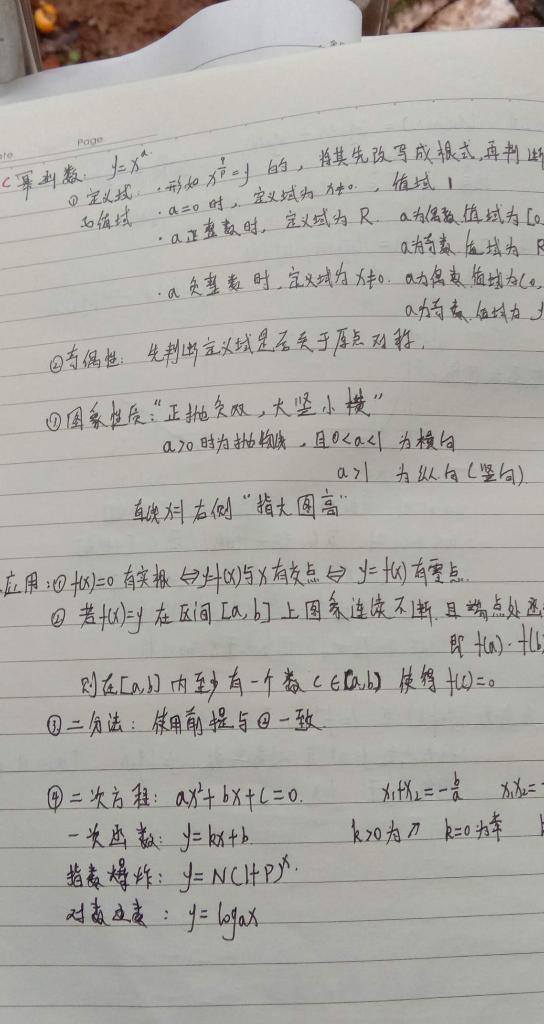 Page
C 幂函数: y=x^a
① 定义域 · 形如 x^(q/p)=y 的, 将其先改写成根式,再判断
与值域 · a=0 时, 定义域为 x≠0, 值域 1
· a 正整数时, 定义域为 R. a为偶数 值域为[0
a为奇数 值域为 R
· a 负整数时, 定义域为 x≠0. a为偶数 值域为(0,
a为奇数 值域为
②奇偶性: 先判断定义域是否关于原点对称.
图象性质:"正抛负双, 大竖小横"
a>0 时为抛物线, 且0<a<1 为横向
a>1 为纵向(竖向)
直线x=1右侧"指大图高"
应用:① f(x)=0 有实根 ⇔ y=f(x)与x有交点 ⇔ y=f(x)有零点
② 若f(x)=y 在区间[a,b]上图象连续不断.且端点处函
即 f(a)·f(b
则在[a,b]内至少有一个数 C∈(a,b) 使得 f(c)=0
③二分法: 使用前提与②一致
④二次方程: ax²+bx+c=0. x₁+x₂=-b/a x₁x₂=
一次函数: y=kx+b. k>0为↗ k=0为
指数爆炸: y=N(1+P)^x.
对数: y=logax